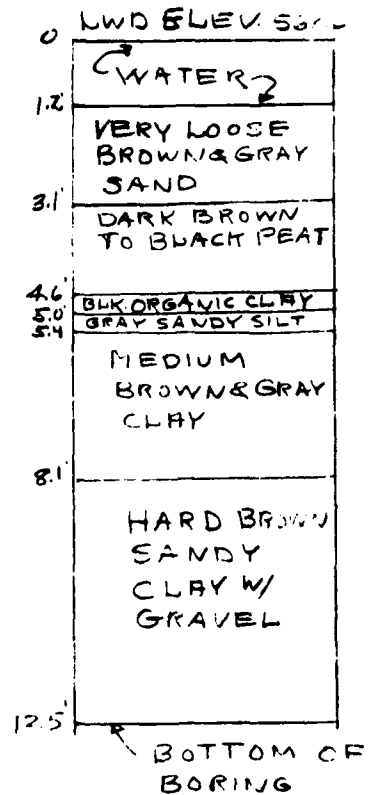 LWD ELEV.
0
WATER
1.2'
VERY LOOSE
BROWN & GRAY
SAND
3.1'
DARK BROWN
TO BLACK PEAT
4.6'
BLK. ORGANIC CLAY
5.0'
GRAY SANDY SILT
5.4
MEDIUM
BROWN & GRAY
CLAY
8.1'
HARD BROWN
SANDY
CLAY W/
GRAVEL
12.5'
BOTTOM OF
BORING